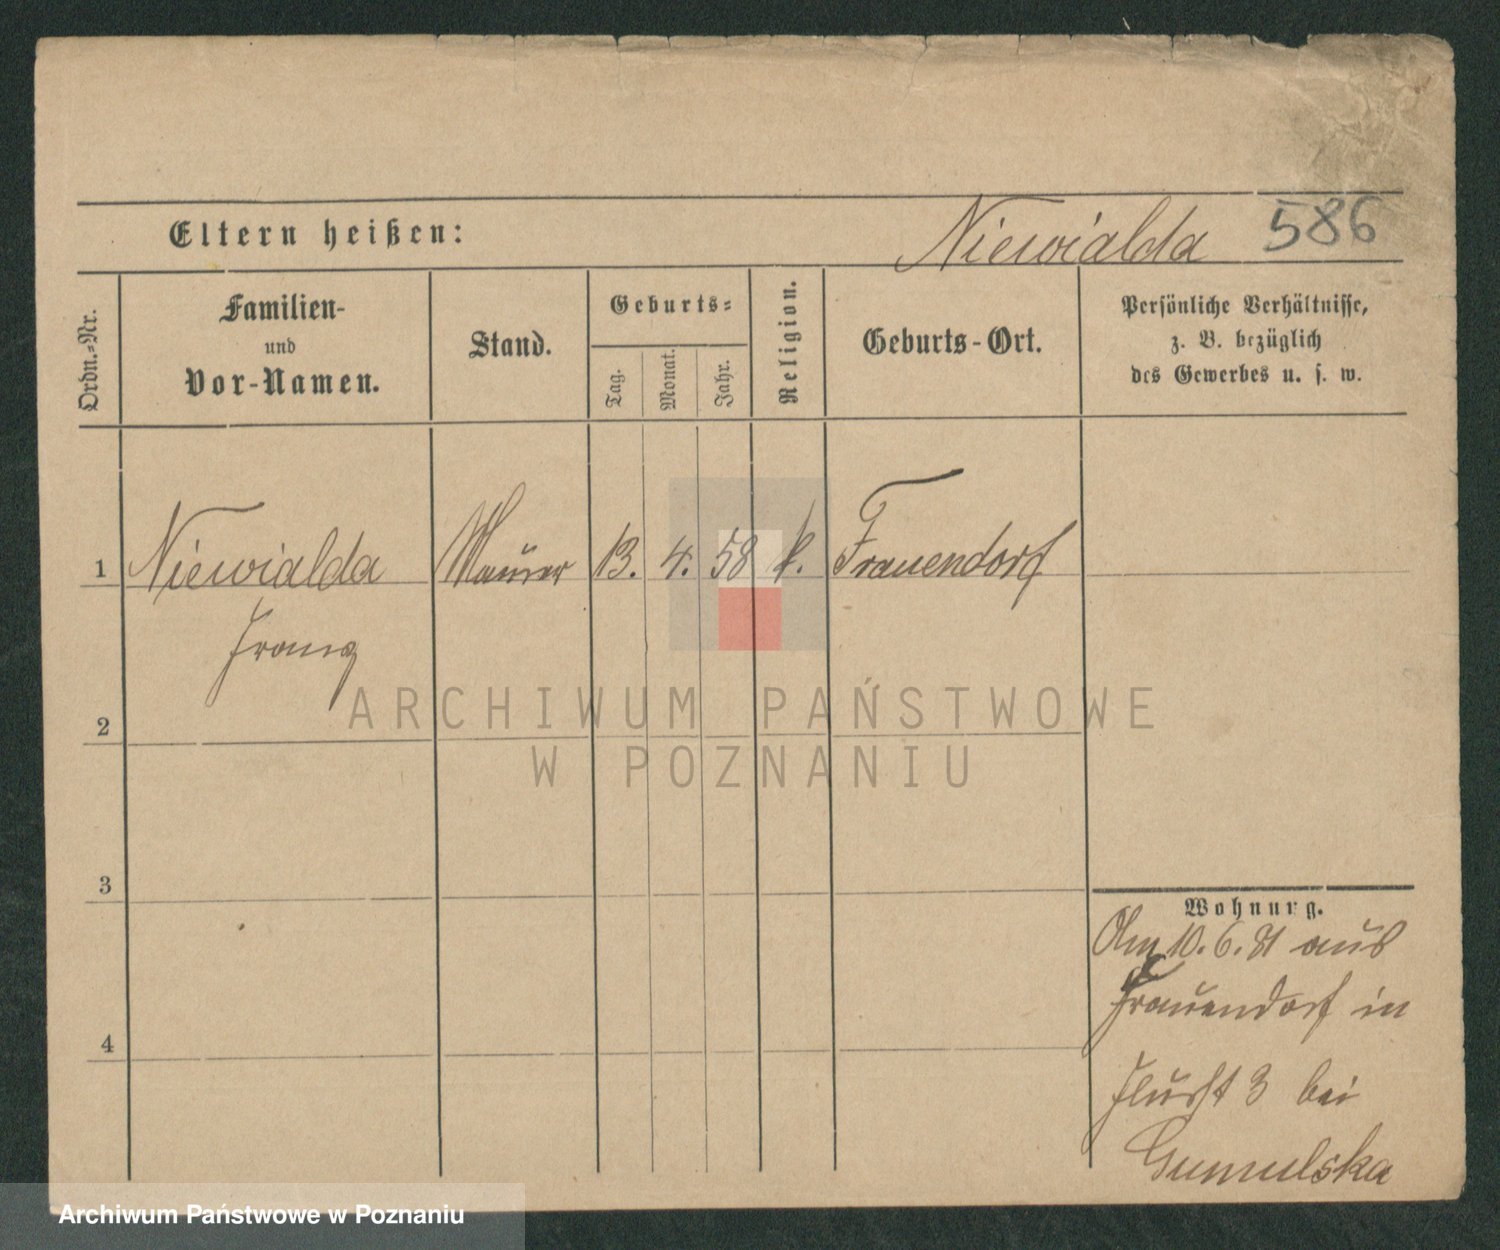 Eltern heißen: Niewialda 586
Ordn.-Nr.
Familien-
und
Vor-Namen.
Stand.
Geburts-
Tag.
Monat.
Jahr.
Religion.
Geburts-Ort.
Persönliche Verhältnisse,
z. B. bezüglich
des Gewerbes u. s. w.
1 Niewialda Maurer 13. 4. 58 k. Frauendorf
Franz
2
3
4
Wohnung.
Am 10. 6. 81 aus
Frauendorf in
3 bei
Gumulska
ARCHIWUM PAŃSTWOWE
W POZNANIU
Archiwum Państwowe w Poznaniu